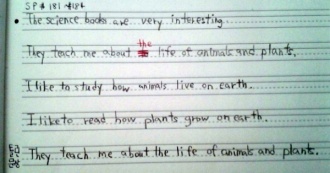 The science books are very interesting.
They teach me about the life of animals and plants.
I like to study how animals live on earth.
I like to read how plants grow on earth.
They teach me about the life of animals and plants.